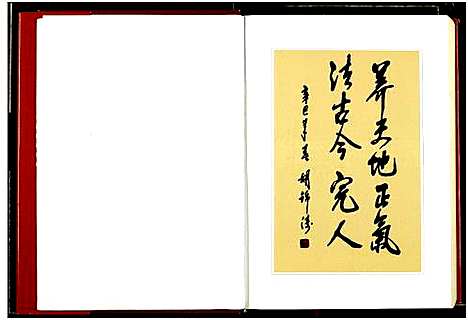 养天地正氣
法古今完人
辛巳孟春 胡錦濤